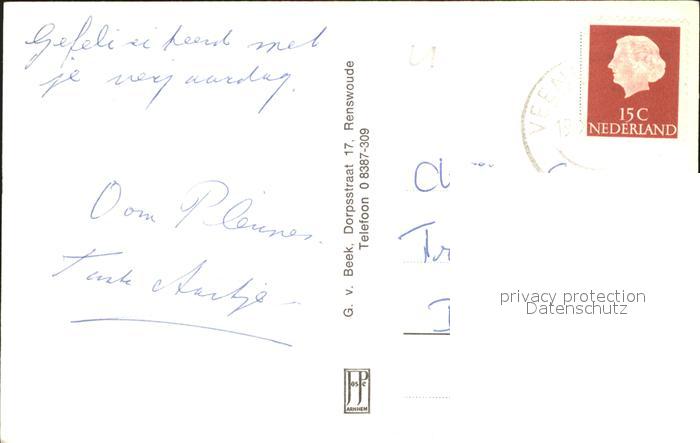 Gefeliciteerd met
je verjaardag.
Oom
Tante Aartje
G. v. Beek, Dorpsstraat 17, Renswoude
Telefoon 0 8387-309
JosPé
ARNHEM
15 C
NEDERLAND
VEEN
Tr
privacy protection
Datenschutz